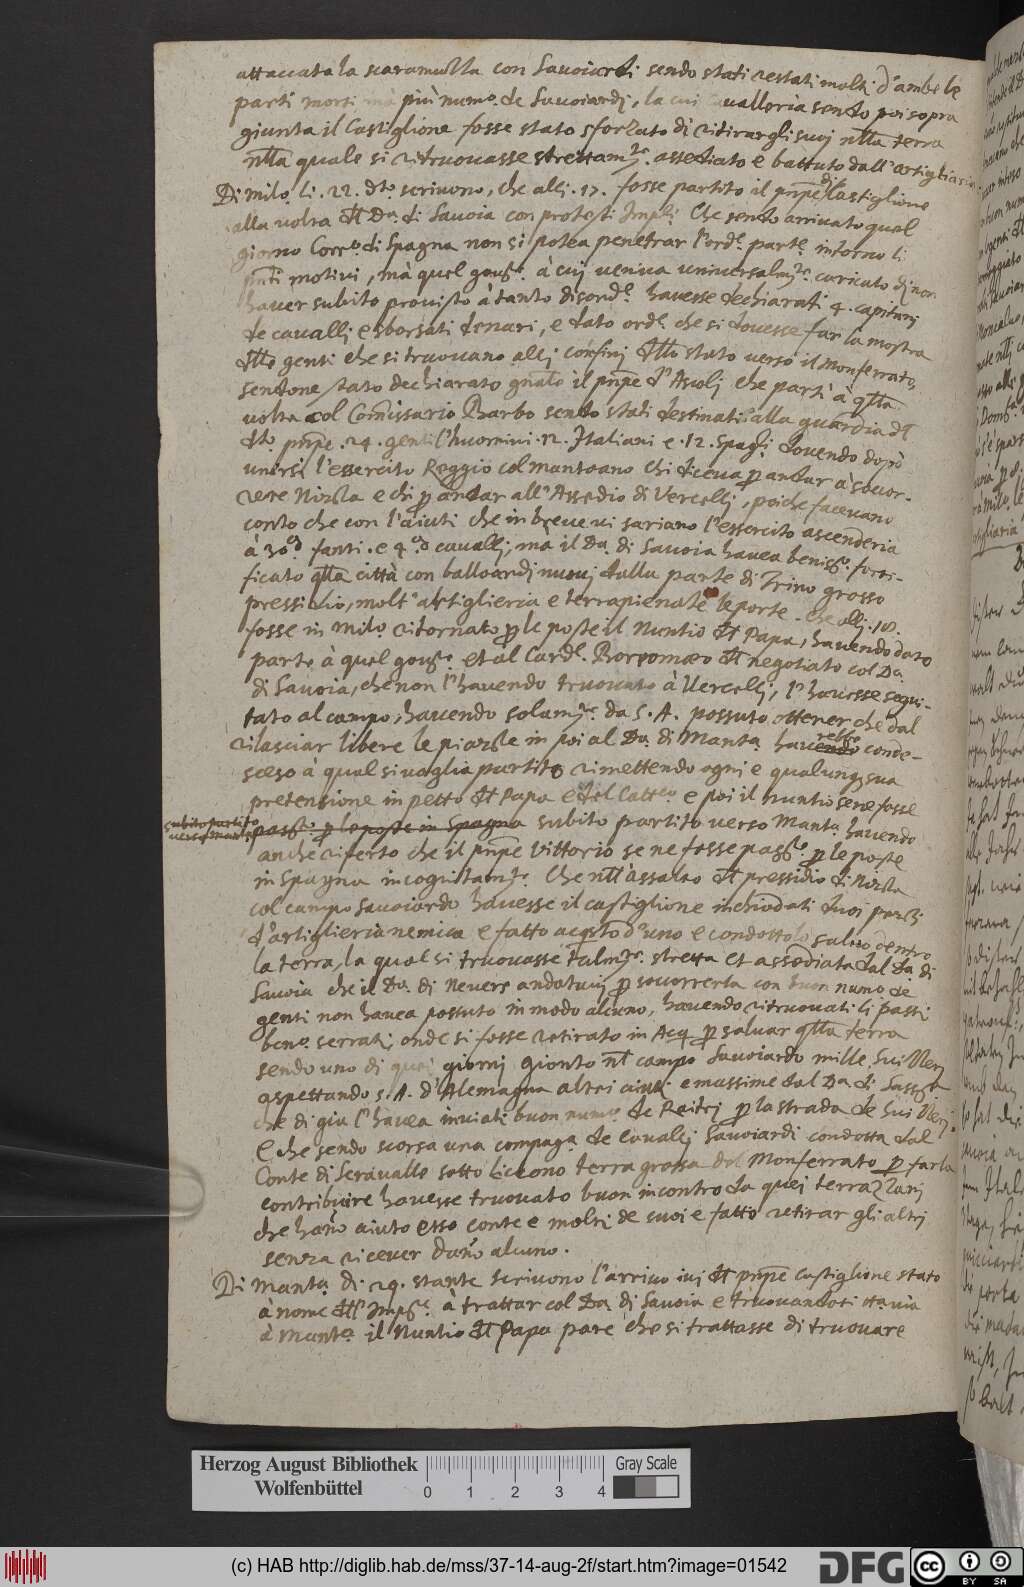 attaccata la scaramuzza con Savoiardi sendo stati restati molti d'ambe le
parti morti mà più num.o de Savoiardi, la cui cavalleria sendo poi sopra
giunta il Castiglione fosse stato sforzato di ritirargli suoi nlla terra
nlla quale si ritruouasse strettam.te assediato e battuto dall'artigliaria
Di mil.o li .22. d.to scriuono, che alli .17. fosse partito il pnpe di Castiglione
alla volta dl Da. di Savoia con protesti Imp.li Che sendo arriuato quel
giorno Corr.o di Spagna non si potea penetrar l'ord.e part.e intorno li
pnti motiui, mà quel gou.re à cui veniua uniuersalm.te caricato di non
hauer subito prouisto à tanto disord.e hauesse dechiarati 4. capitani
de caualli e sborsati denari, e dato ord.e che si douesse far la mostra
dlle genti che si truouano alli confini dllo stato verso il Monferrato,
sendone stato dechiarato gnale il pnpe d'Ascoli che partì à qlla
volta col Comissario Barbo sendo stati destinati alla guardia dl
d.to pnpe .24. gentil'huomini .12. Italiani e .12. Spag.li douendo dopò
unirsi l'essercito Reggio col mantoano chi diceua p andar à socor-
rere Nizza e chi p andar all'Assedio di Vercelli, poiche faceuano
conto che con l'aiuti che in breue ui sariano l'essercito ascenderia
à 30 fanti e 4 caualli, mà il Da. di Savoia hauea beniss.o forti-
ficato qlla città con balloardi nuoui dalla parte di Trino grosso
pressidio, molt'artiglieria e terrapienate le porte. Che alli .18.
fosse in mil.o ritornato p le poste il Nuntio dl Papa, hauendo dato
parte à quel gou.re et al Card.l Borromeo dl negotiato col Da.
di Savoia, che non l'hauendo truouato à Vercelli, l'hauesse segui-
tato al campo, hauendo solam.te da S. A. possuto ottener che dal
rilasciar libere le piazze in poi al Da. di Manta. hauerebbe conde-
sceso à qual si uoglia partito rimettendo ogni e qualunq sua
pretensione in petto dl Papa e del Catt.co e poi il nuntio se ne fosse
subito partito
verso Manta.
pass.o p le poste in Spagna subito partito verso Manta. hauendo
anche riferto che il pnpe Vittorio se ne fosse pass.o p le poste
in Spagna incognitam.te Che nll'assalto dl pressidio di Nizza
col campo Sauoiardo hauesse il castiglione inchiodati duoi pezzi
d'artiglieria nemica e fatto acq.sto d'uno e condottolo saluo dentro
la terra, la qual si truouasse talm.te stretta et assediata dal Da. di
Savoia che il Da. di Neuers andatoui p soccorrerla con buon num.o de
genti non hauea possuto in modo alcuno, hauendo ritruouati li passi
ben.o serrati, onde si fosse retirato in Acq p saluar qlla terra
sendo uno di quei giorni gionto nl campo Sauoiardo mille Suizzeri
aspettando S. A. d'Alemagna altri aiuti e massime dal Da. di Sassa
che di giu l'hauea inuiati buon num.o de Reitri p la strada de Suizzeri.
E che sendo scorsa una compag.a de Caualli Savoiardi condotta dal
Conte di Seraualle sotto liccono terra grossa del Monferrato p farla
contribuire hauesse truouato buon incontro da quei terrazzani
che hano aiuto esso conte e molti de suoi e fatto retirar gli altri
senza riceuer dano alcuno.
Di Manta. di 29. stante scriuono l'arriuo iui dl pnpe Castiglione stato
à nome dll'Imp.re à trattar col Da. di Savoia e truouandosi tt.a uia
à Manta. il Nuntio dl Papa pare che si trattasse di truouare
Herzog August Bibliothek
Wolfenbüttel
0 1 2 3 4
Gray Scale
(c) HAB http://diglib.hab.de/mss/37-14-aug-2f/start.htm?image=01542
DFG
cc BY SA